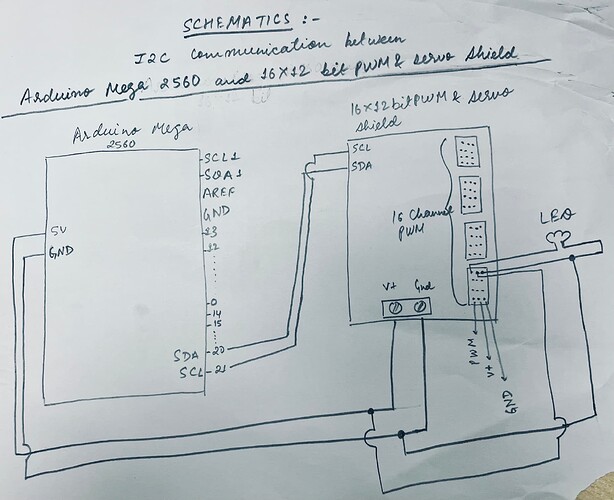 SCHEMATICS :-
I2C communication between
Arduino Mega 2560 and 16X12 bit PWM & servo shield
Arduino Mega
2560
16X12bit PWM & servo
shield
SCL1
SDA1
AREF
GND
13
12
0
14
15
SDA - 20
SCL - 21
5V
GND
SCL
SDA
16 Channel
PWM
V+ Gnd
LED
PWM
V+
GND